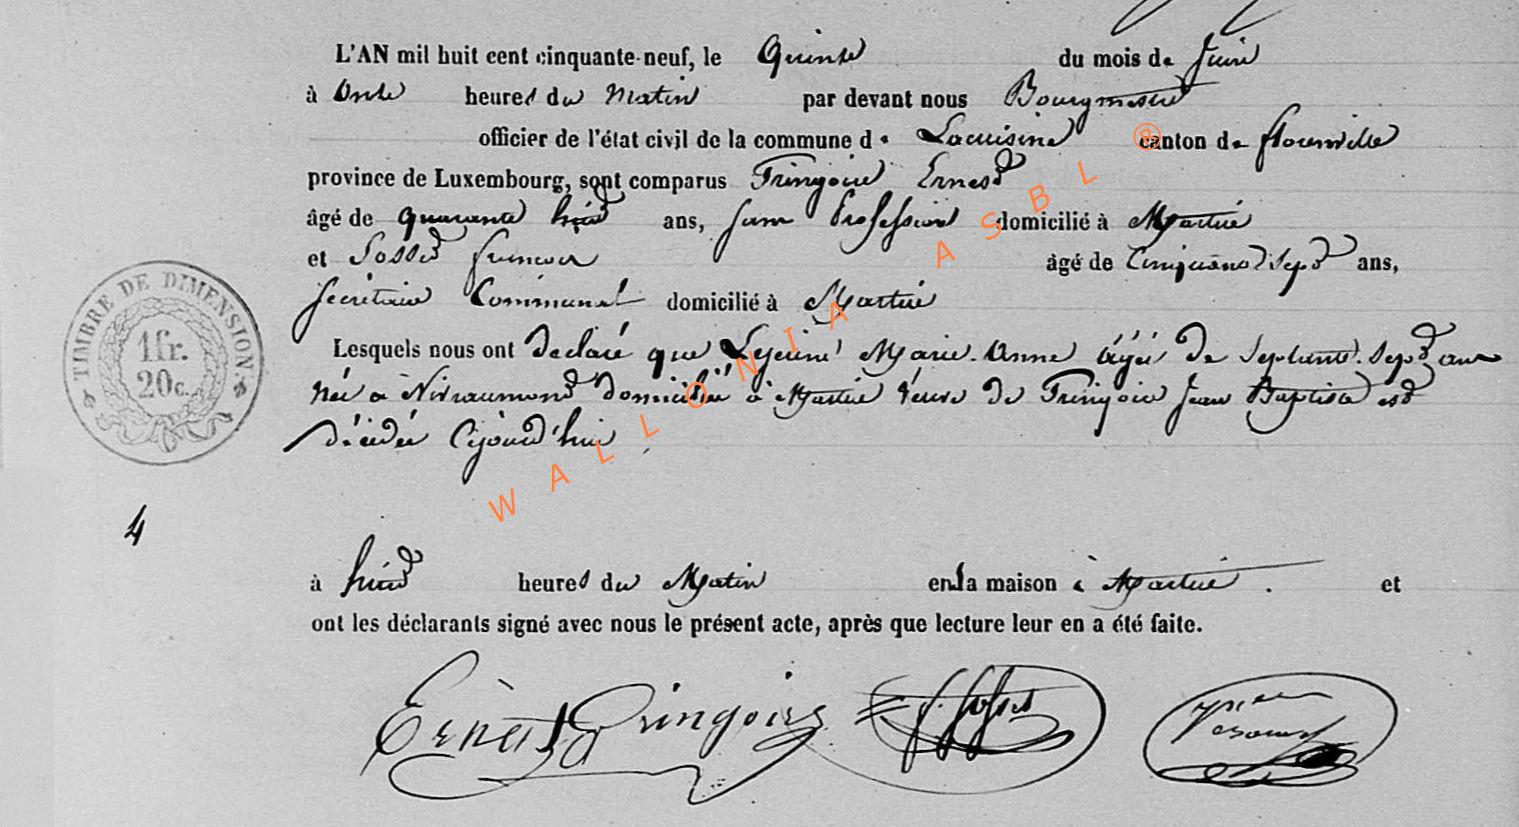 L'AN mil huit cent cinquante-neuf, le Quinze du mois de Juin
à Onze heures du Matin par devant nous Bourgmestre
officier de l'état civil de la commune de Lacuisine canton de florenville
province de Luxembourg, sont comparus Fringoire Ernest
âgé de quarante huit ans, sans Profession domicilié à Martué
et Sosset francois âgé de Cinquante Sept ans,
secrétaire Communal domicilié à Martué
Lesquels nous ont declaré que Lejeune Marie-Anne âgée de Septante-Sept ans
née a domiciliée à Martué veuve de Fringoire Jean Baptiste est
décédée Cejourd'hui
à huit heures du Matin en la maison à Martué . et
ont les déclarants signé avec nous le présent acte, après que lecture leur en a été faite.
Ernest Fringoire f. Sosset
TIMBRE DE DIMENSION.
1 fr.
20 c.
4
WALLONIA ASBL ®